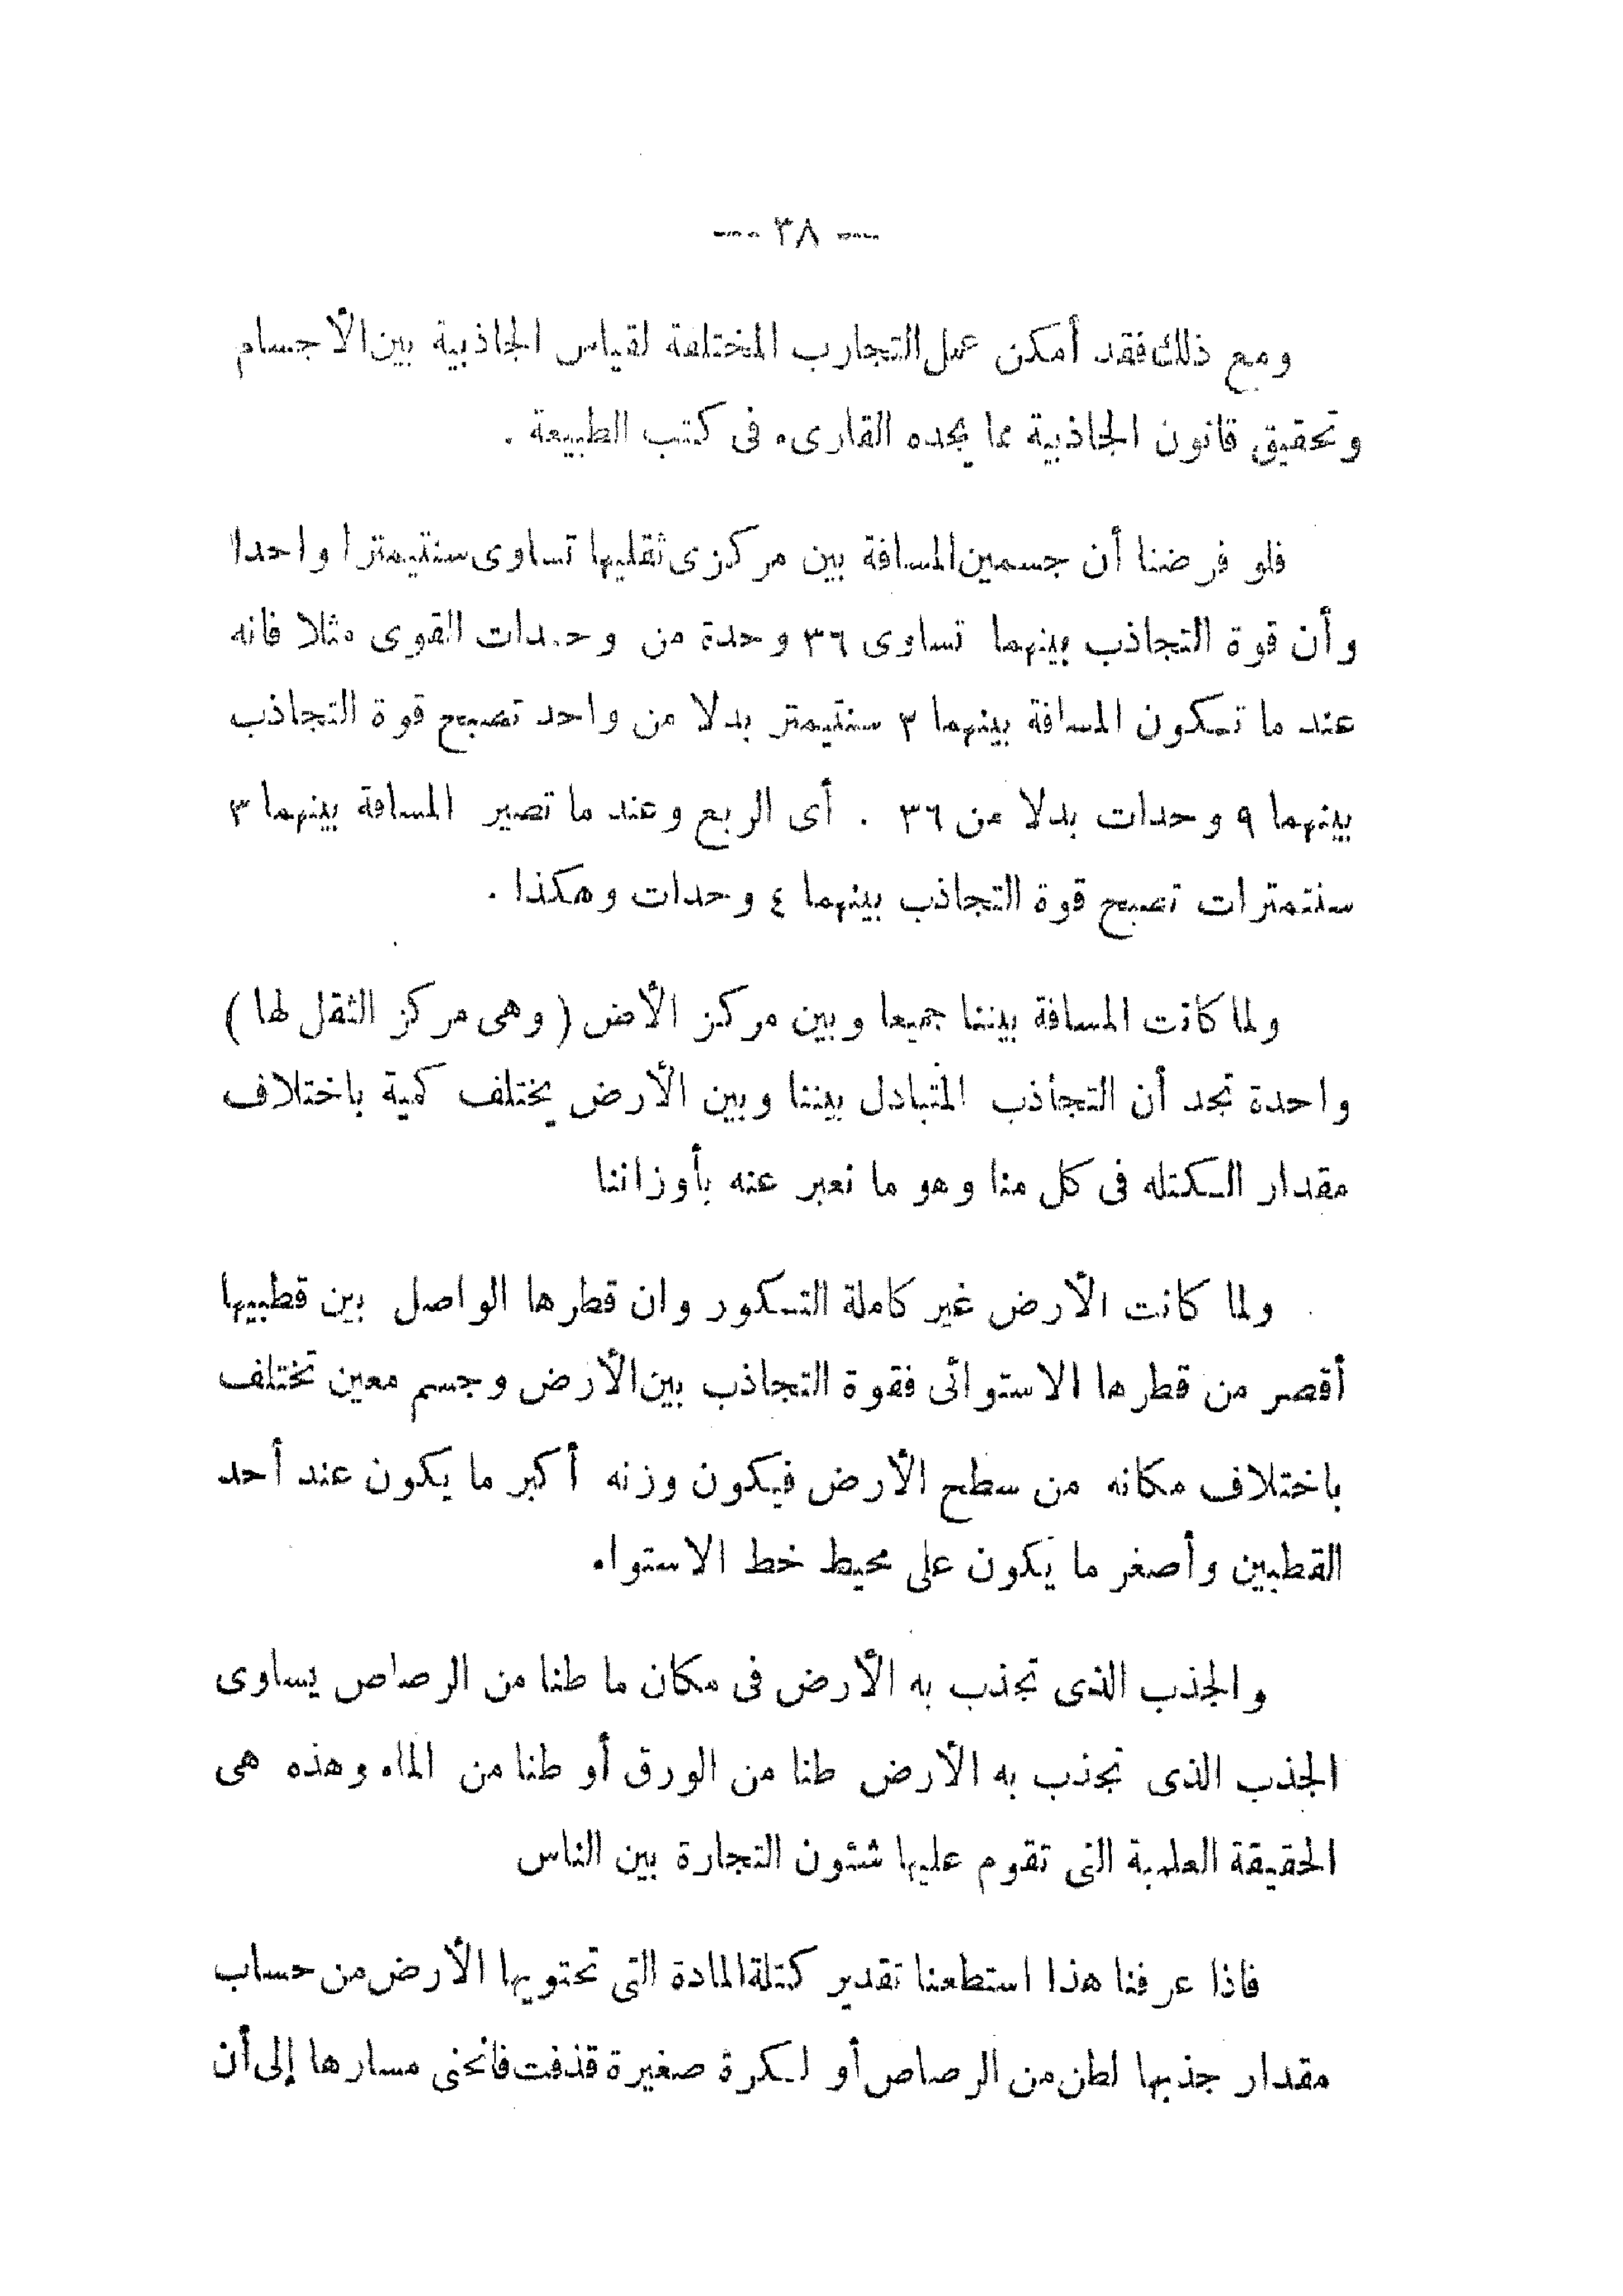 — ٣٨ —
ومع ذلك فقد أمكن عمل التجارب المختلفة لقياس الجاذبية بين الأجسام
وتحقيق قانون الجاذبية مما يجده القارىء فى كتب الطبيعة .
فلو فرضنا أن جسمين المسافة بين مركزى ثقليها تساوى سنتيمترا واحدا
وأن قوة التجاذب بينهما تساوى ٣٦ وحدة من وحدات القوى مثلا فانه
عند ما تكون المسافة بينهما ٣ سنتيمتر بدلا من واحد تصبح قوة التجاذب
بينهما ٩ وحدات بدلا من ٣٦ . أى الربع وعند ما تصير المسافة بينهما ٣
سنتمترات تصبح قوة التجاذب بينهما ٤ وحدات وهكذا .
ولما كانت المسافة بيننا جميعا وبين مركز الأض ( وهى مركز الثقل لها )
واحدة نجد أن التجاذب المتبادل بيننا وبين الأرض يختلف كمية باختلاف
مقدار الكتله فى كل منا وهو ما نعبر عنه بأوزاننا
ولما كانت الأرض غير كاملة التكور وان قطرها الواصل بين قطبيها
أقصر من قطرها الاستوائى فقوة التجاذب بين الأرض وجسم معين تختلف
باختلاف مكانه من سطح الأرض فيكون وزنه أكبر ما يكون عند أحد
القطبين وأصغر ما يكون على محيط خط الاستواء
والجذب الذى تجذب به الأرض فى مكان ما طنا من الرصاص يساوى
الجذب الذى تجذب به الأرض طنا من الورق أو طنا من الماء وهذه هى
الحقيقة العلمية التى تقوم عليها شئون التجارة بين الناس
فاذا عرفنا هذا استطعنا تقدير كتلة المادة التى تحتويها الأرض من حساب
مقدار جذبها لطن من الرصاص أو لكرة صغيرة قذفت فانحنى مسارها إلى أن